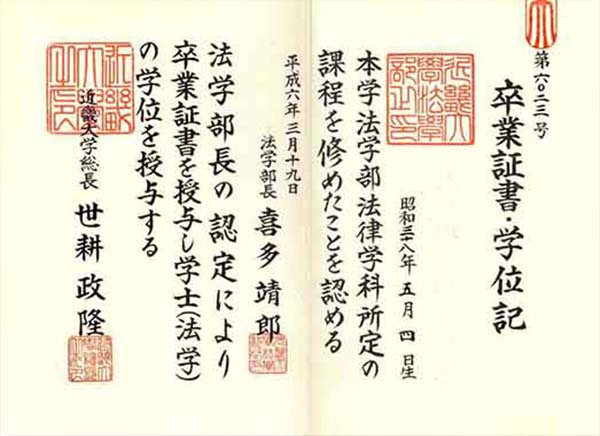 第六〇二三号
卒業証書・学位記
昭和三十八年五月四日生
本学法学部法律学科所定の
課程を修めたことを認める
平成六年三月十九日
法学部長 喜多靖郎
法学部長の認定により
卒業証書を授与し学士(法学)
の学位を授与する
近畿大学総長 世耕政隆